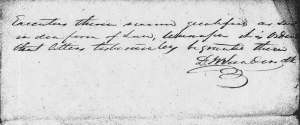 Executors therein named qualified as such
in due form of Law, whereupon it is Ordered
that letters testamentary be granted them